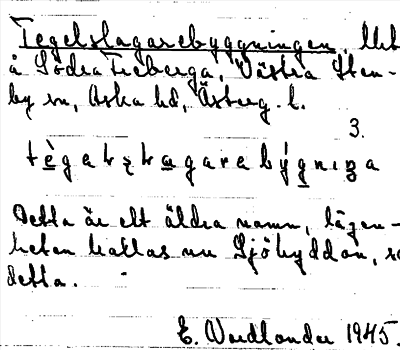 Tegelslagarebyggningen, Uteb
å Södra Freberga, Västra Sten-
by sn, Aska hd, Österg. l.
3.
Detta är ett äldre namn, lägen-
heten kallas nu Sjöhyddan, se
detta.
E. Nordlander 1945.